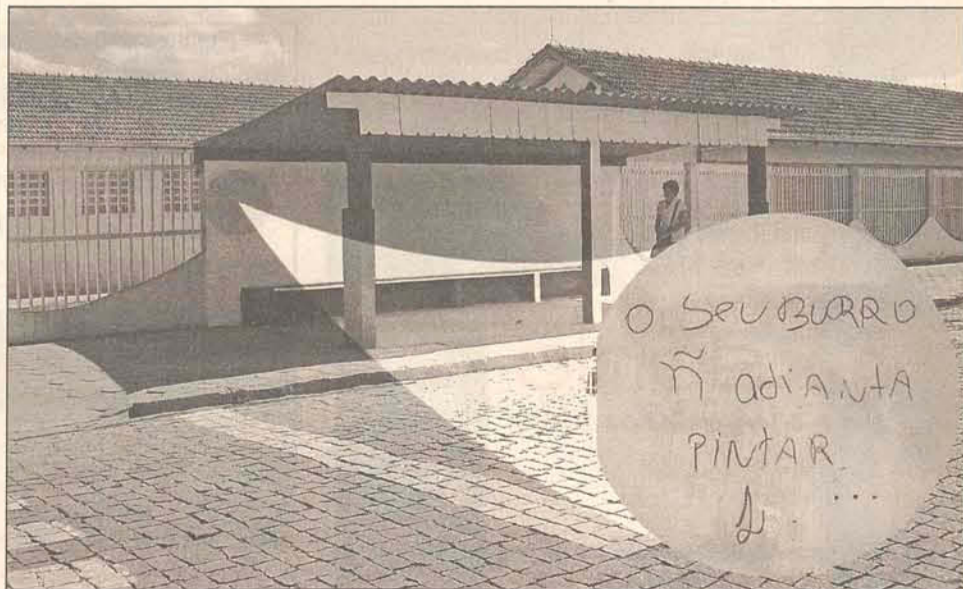 O SEU BURRO
Ñ adiANtA
PiNtAR
...